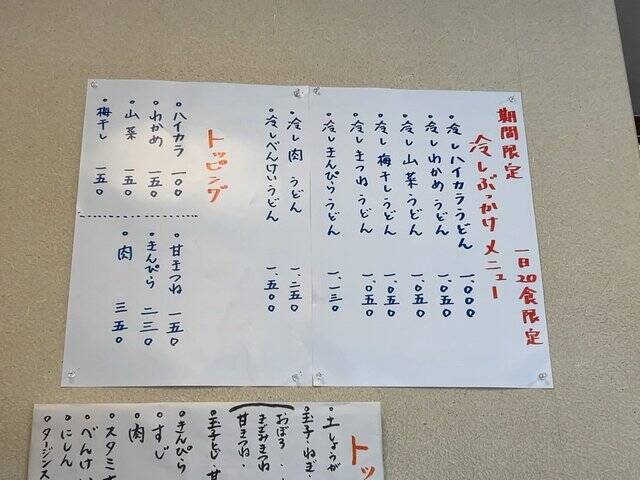 期間限定
一日20食限定
冷しぶっかけメニュー
。冷しハイカラうどん 一、〇〇〇
。冷しわかめうどん 一、〇五〇
。冷し山菜うどん 一、〇五〇
。冷し梅干しうどん 一、〇五〇
。冷しきつねうどん 一、〇五〇
。冷しきんぴらうどん 一、一三〇
。冷し肉うどん 一、二五〇
。冷しべんけいうどん 一、五〇〇
トッピング
。ハイカラ 一〇〇
。わかめ 一五〇
。山菜 一五〇
。梅干し 一五〇
。甘きつね 一五〇
。きんぴら 二三〇
。肉 三五〇
トッ
。土しょうが
。玉子・ねぎ・
おぼろ・
きざみきつね
甘きつね・
。玉子とじ・甘
。きんぴら
。すじ
。肉
。スタミナ
。べんけい
。にしん
。タージンス